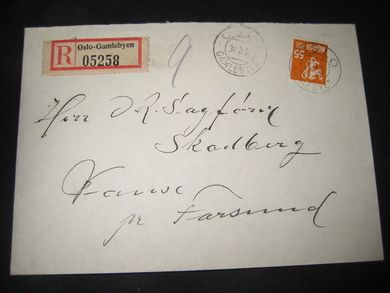 R Oslo-Gamlebyen
05258
9
GAMLEBYEN
NORGE
55
Herr O.R. Sagfører
Skadberg
Vanse
pr Farsund